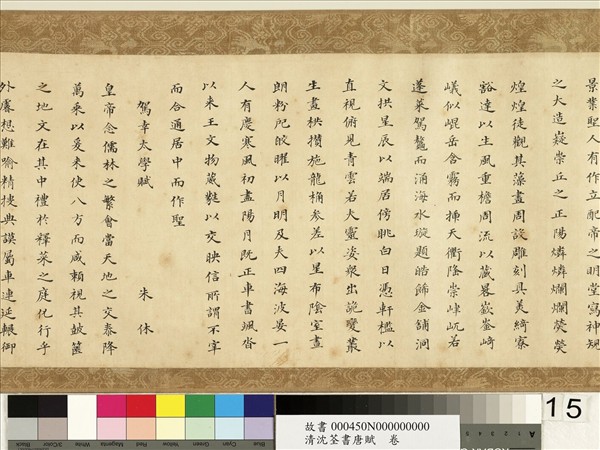 景業聖人有作立配帝之明堂寫神規
之大造嶷崇丘之正陽燐燐爛爛熒熒
煌煌徒觀其藻畫周設雕刻具美綺寮
豁達以生風重檐周流以藏晷嶔崟崎
嶬似崐岳含霧而揷天衢隆崇崒屼若
蓬萊駕鼇而涌海水璇題皓飾金舖洞
文拱星辰以端居傍眺白日憑軒檻以
直視俯見青雲若夫靈姿衆出詭變叢
生畫栱攢施龍桷參差以星布陰室晝
朗粉陛皎曜以月明及夫四海波晏一
人有慶寒風初盡陽月既正車書颯沓
以來王文物葳蕤以交映信所謂不宰
而合通居中而作聖
駕幸太學賦 朱休
皇帝念儒林之繁會當天地之交泰降
萬乘以爰來使八方而咸賴視其鼓篋
之地文在其中禮於釋菜之庭化行乎
外 想難喻精 典謨屬車連延輾御
Black 3/Color White Magenta Red Yellow Green Cyan Blue
故書 000450N000000000
清沈荃書唐賦 卷
15
A